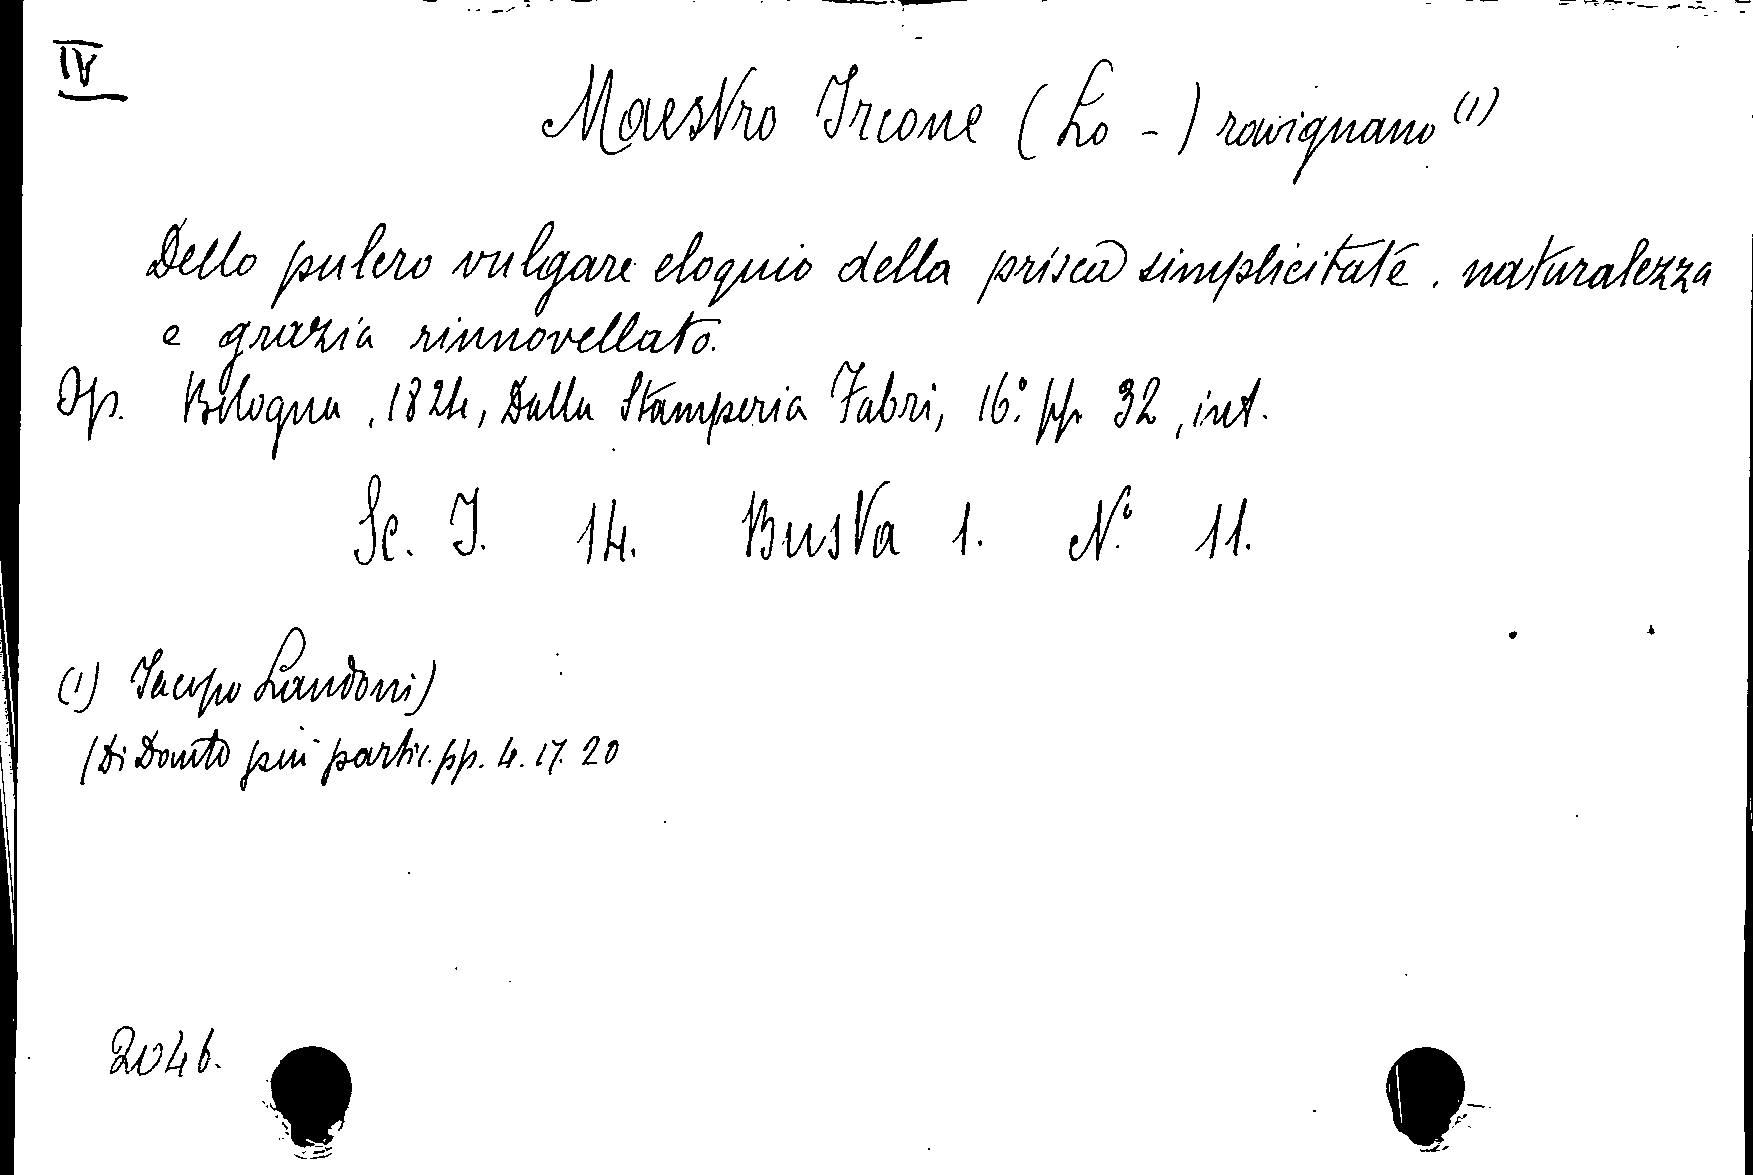 IV
Maestro Ircone (Lo -) ravignano (1)
Dello pulcro vulgare eloquio della prisca simplicitate. naturalezza
e grazia rinnovellato.
Op. Bologna, 1824, Dalla Stamperia Fabri, 16.° pp. 32, int.
Sc. I. 14. Busta 1. N.° 11.
(1) Iacopo Landoni)
(Di Dante più partic. pp. 4. 17. 20
2046.